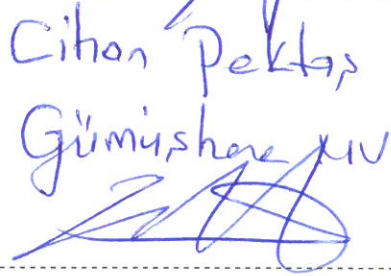 Cihan Pektaş
Gümüşhane MV